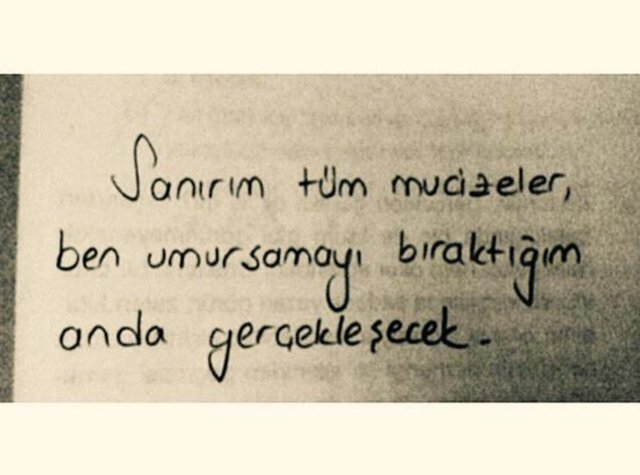 Sanırım tüm mucizeler,
ben umursamayı bıraktığım
anda gerçekleşecek.